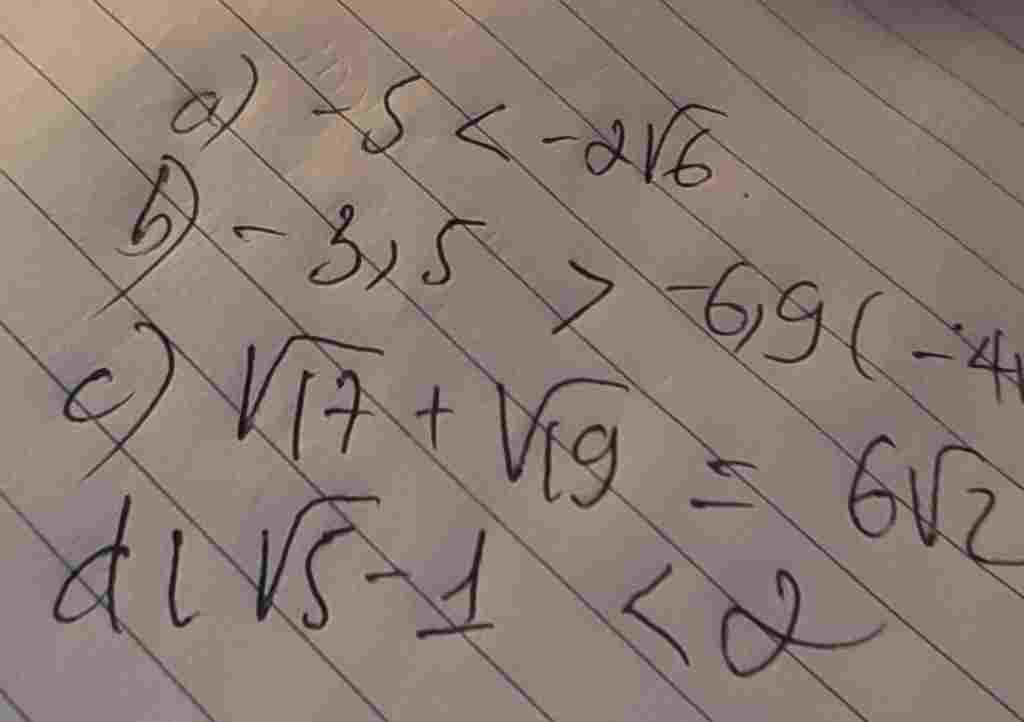 a) -5 < -2√6.
b) -3,5 > -6,9 (-4
c) √17 + √19 = 6√2
d) √5 - 1 < 2